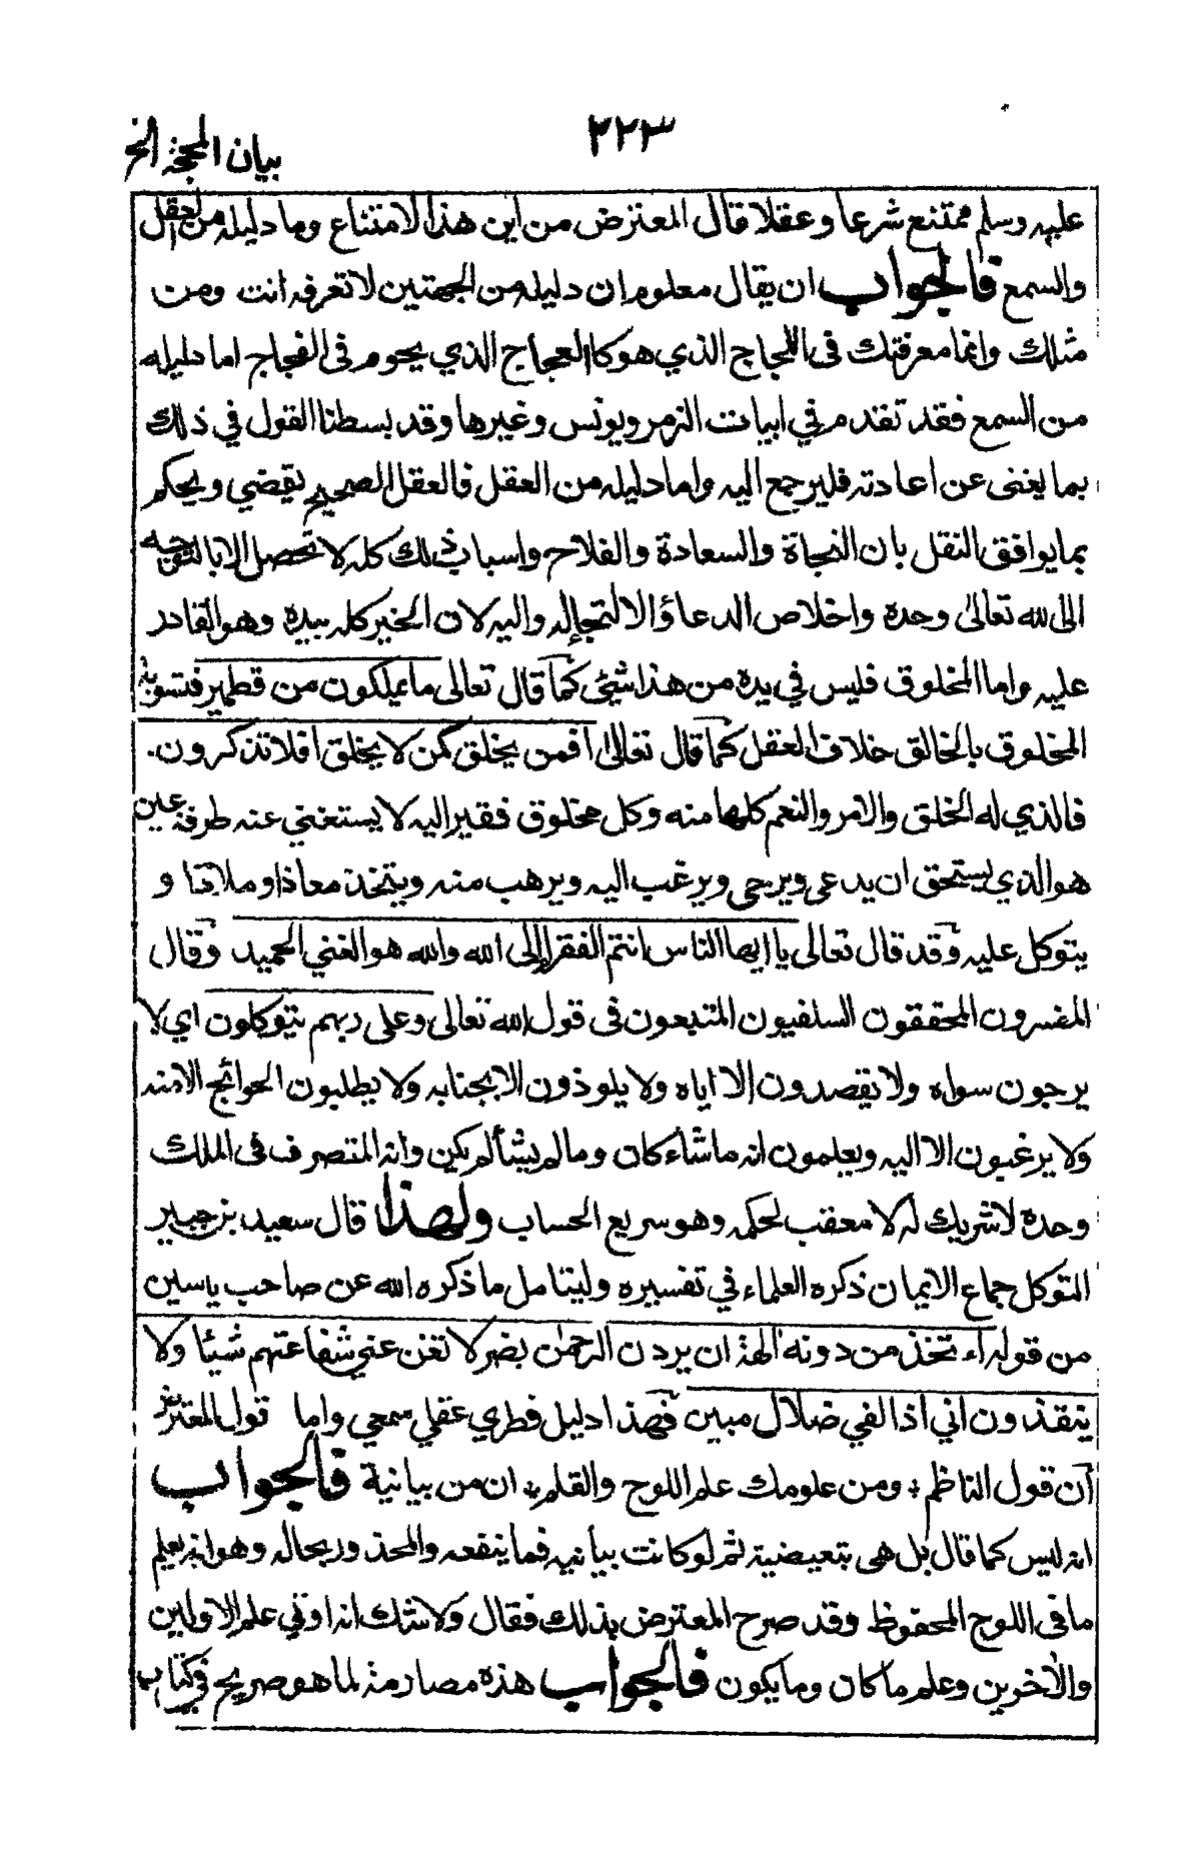 ٢٢٣
بيان المحجة الخ
عليه وسلم ممتنع شرعا وعقلا قال المعترض من اين هذا الامتناع وما دليله من العقل
والسمع فالجواب ان يقال معلوم ان دليله من الجهتين لا تعرفه انت ومن
مثلك وانما معرفتك فى اللجاج الذي هو كالعجاج الذي يحوم فى الفجاج اما دليله
من السمع فقد تقدم في ابيات الزمر ويونس وغيرها وقد بسطنا القول في ذلك
بما يغنى عن اعادته فليرجع اليه واما دليله من العقل فالعقل الصحيح يقضي ويحكم
بما يوافق النقل بان النجاة والسعادة والفلاح واسباب ذلك كله لا تحصل الا بالتوجه
الى الله تعالى وحده واخلاص الدعاء والالتجا له واليه لان الخير كله بيده وهو القادر
عليه واما المخلوق فليس في يده من هذا شيئ كما قال تعالى ما يملكون من قطمير فتسوية
المخلوق بالخالق خلاف العقل كما قال تعالى افمن يخلق كمن لا يخلق افلا تذكرون.
فالذي له الخلق والامر والنعم كلها منه وكل مخلوق فقير اليه لا يستغني عنه طرفة عين
هو الذي يستحق ان يدعى ويرجى ويرغب اليه ويرهب منه ويتخذ معاذا وملاذا و
يتوكل عليه وقد قال تعالى يا ايها الناس انتم الفقرا إلى الله والله هو الغني الحميد وقال
المفسرون المحققون السلفيون المتبعون فى قول الله تعالى وعلى ربهم يتوكلون اي لا
يرجون سواه ولا يقصدون إلا اياه ولا يلوذون الا بجنابه ولا يطلبون الحوائج الا منه
ولا يرغبون الا اليه ويعلمون انه ما شاء كان وما لم يشأ لم يكن وانه المتصرف فى الملك
وحده لا شريك له لا معقب لحكمه وهو سريع الحساب ولهذا قال سعيد بن جبير
التوكل جماع الايمان ذكره العلماء في تفسيره وليتامل ما ذكره الله عن صاحب ياسين
من قوله اء تخذ من دونه الهة ان يردن الرحمن بضر لا تغن عني شفاعتهم شيئا ولا
ينقذون اني اذا لفي ضلال مبين فهذا دليل فطري عقلي سمعي واما قول المعترض
ان قول الناظم ؛ ومن علومك علم اللوح والقلم ؛ ان من بيانية فالجواب
انه ليس كما قال بل هى تبعيضية ثم لو كانت بيانيه فما ينفعه والمحذور بحاله وهو انه يعلم
ما فى اللوح المحفوظ وقد صرح المعترض بذلك فقال ولا شك انه اوتي علم الاولين
والآخرين وعلم ما كان وما يكون فالجواب هذه مصادمة لما هو صريح فى كتاب